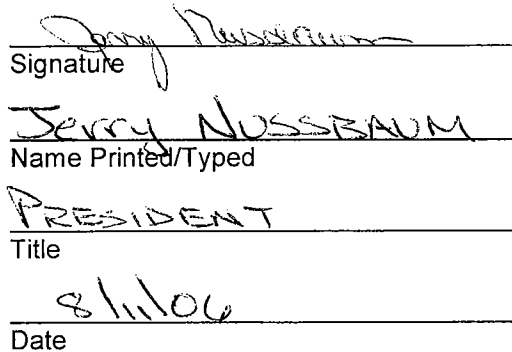 Jerry Nussbaum
Signature
Jerry NUSSBAUM
Name Printed/Typed
PRESIDENT
Title
8/11/06
Date